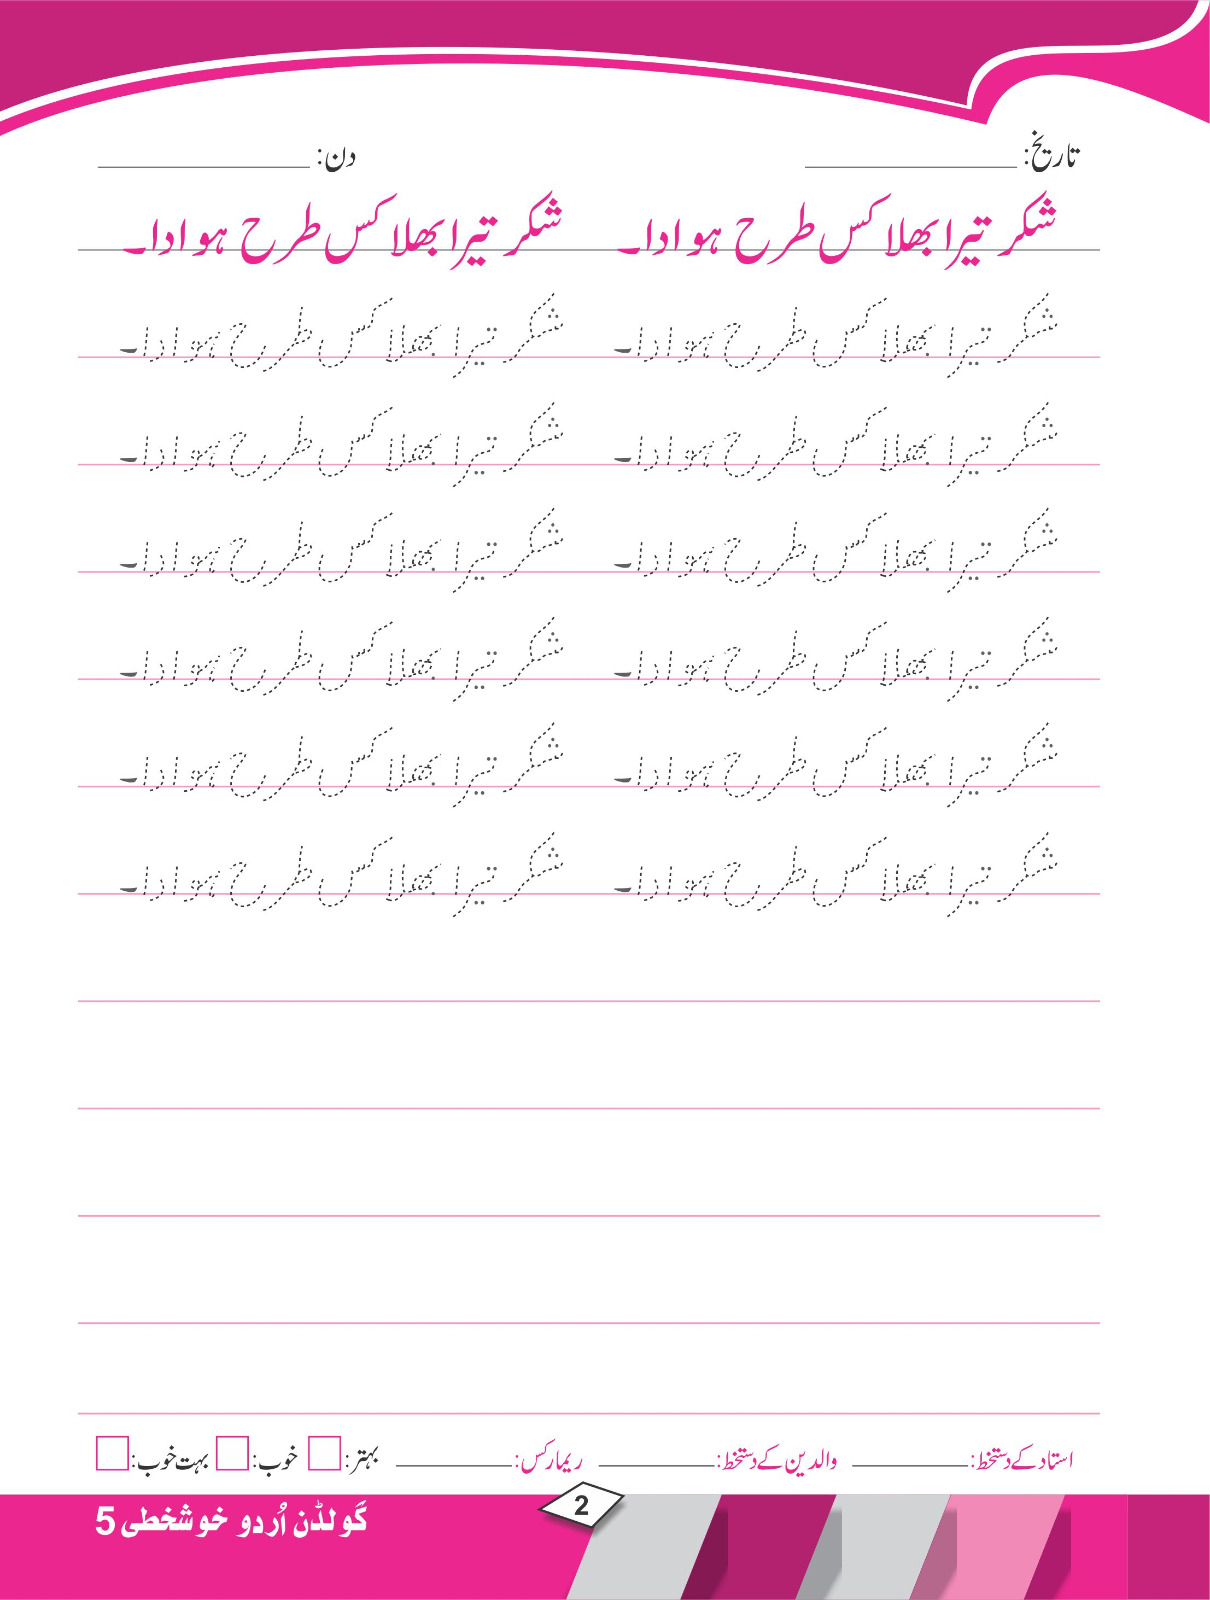 تاریخ: ____________ دن: ____________
شکر تیرا بھلا کس طرح ہو ادا۔ شکر تیرا بھلا کس طرح ہو ادا۔
شکر تیرا بھلا کس طرح ہو ادا۔ شکر تیرا بھلا کس طرح ہو ادا۔
شکر تیرا بھلا کس طرح ہو ادا۔ شکر تیرا بھلا کس طرح ہو ادا۔
شکر تیرا بھلا کس طرح ہو ادا۔ شکر تیرا بھلا کس طرح ہو ادا۔
شکر تیرا بھلا کس طرح ہو ادا۔ شکر تیرا بھلا کس طرح ہو ادا۔
شکر تیرا بھلا کس طرح ہو ادا۔ شکر تیرا بھلا کس طرح ہو ادا۔
شکر تیرا بھلا کس طرح ہو ادا۔ شکر تیرا بھلا کس طرح ہو ادا۔
استاد کے دستخط: ________ والدین کے دستخط: ________ ریمارکس: ________ بہتر: خوب: بہت خوب:
2
گولڈن اُردو خوشخطی 5